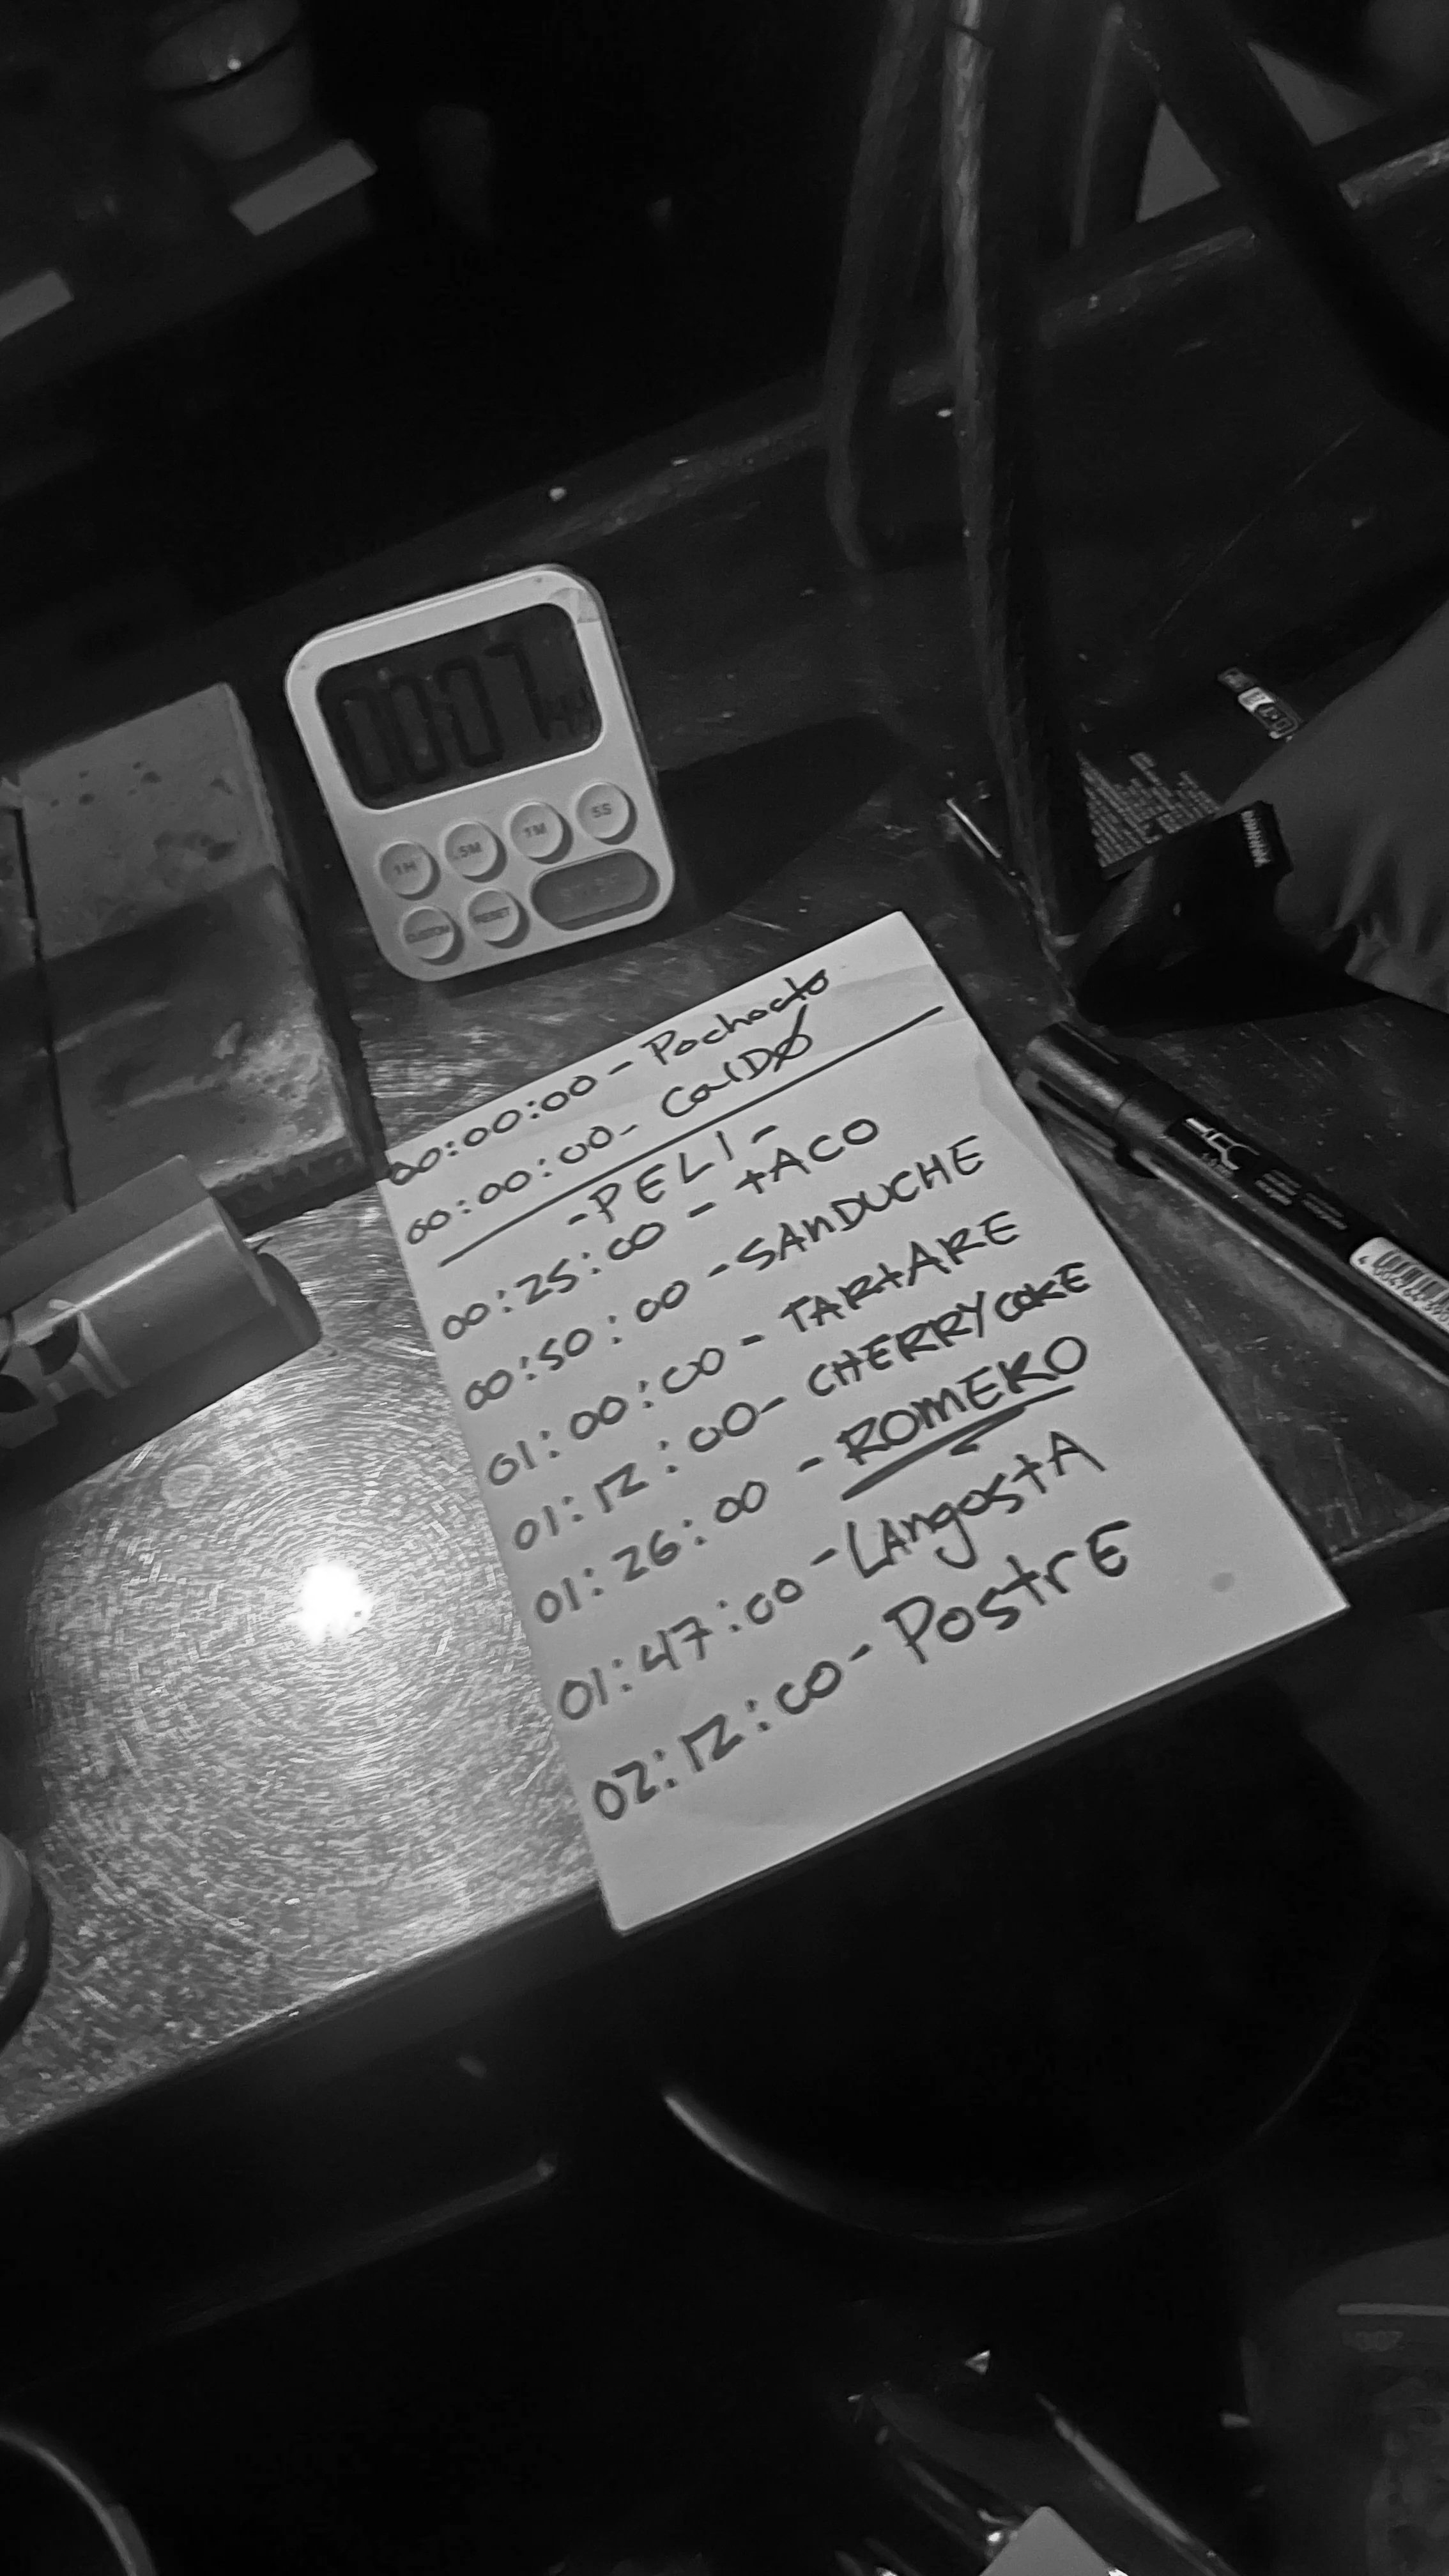 00:07
1H 5M 1M 5S
CUSTOM RESET
00:00:00 - Pochoclo
00:00:00 - CalDO
- PELI -
00:25:00 - tACO
00:50:00 - SAnDUCHE
01:00:00 - TARtARE
01:12:00 - CHERRY COKE
01:26:00 - ROMERO
01:47:00 - LAngostA
02:12:00 - PostrE